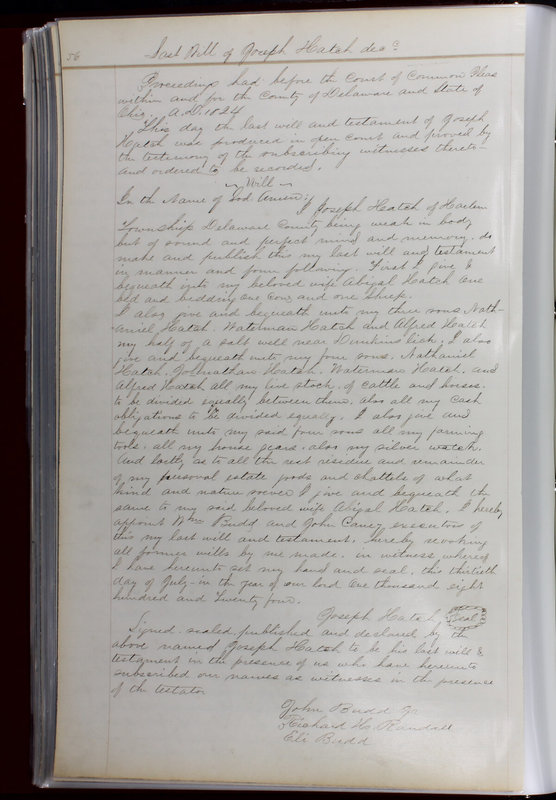 56
Last Will of Joseph Hatch decd
Proceedings had before the Court of Common Pleas
within and for the County of Delaware and State of
Ohio. A.D. 1824
This day the last will and testament of Joseph
Hatch was produced in open court and proved by
the testimony of the subscribing witnesses thereto
and ordered to be recorded.
Will
In the Name of God Amen: I Joseph Hatch of Harlem
Township Delaware County being weak in body
but of sound and perfect mind and memory. do
make and publish this my last will and testament
in manner and form following. First I give &
bequeath unto my beloved wife Abigal Hatch One
bed and bedding One Cow, and one Sheep.
I also give and bequeath unto my three sons Nath-
aniel Hatch. Waterman Hatch and Alfred Hatch
my half of a salt well near Lick. I also
give and bequeath unto my four sons. Nathaniel
Hatch. Hatch. Waterman Hatch. and
Alfred Hatch all my live stock. of cattle and horses.
to be divided equally between them. also all my cash
obligations to be divided equally. I also give and
bequeath unto my said four sons all my farming
tools. all my horse gears. also my silver watch.
And lastly as to all the rest residue and remainder
of my personal estate goods and chattels of what
kind and nature soever I give and bequeath the
same to my said beloved wife Abigal Hatch. I hereby
appoint Wm Budd and John Caney executors of
this my last will and testament. hereby revoking
all former wills by me made. in witness whereof
I have hereunto set my hand and seal. this thirtieth
day of July in the year of our lord One thousand eight
hundred and twenty four.
Joseph Hatch Seal
Signed. sealed. published and declared by the
above named Joseph Hatch to be his last will &
testament in the presence of us who have hereunto
subscribed our names as witnesses in the presence
of the testator
John Budd Jr
Richard H. Randall
Eli Budd